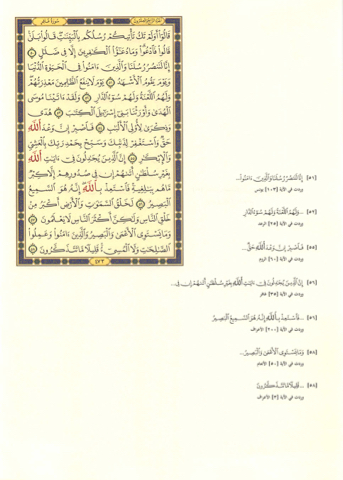 سورة غافر
قَالُوٓا۟ أَوَلَمْ تَكُ تَأْتِيكُمْ رُسُلُكُم بِٱلْبَيِّنَٰتِ قَالُوا۟ بَلَىٰ
قَالُوا۟ فَٱدْعُوا۟ وَمَا دُعَٰٓؤُا۟ ٱلْكَٰفِرِينَ إِلَّا فِى ضَلَٰلٍ ٥٠
إِنَّا لَنَنصُرُ رُسُلَنَا وَٱلَّذِينَ ءَامَنُوا۟ فِى ٱلْحَيَوٰةِ ٱلدُّنْيَا
وَيَوْمَ يَقُومُ ٱلْأَشْهَٰدُ ٥١ يَوْمَ لَا يَنفَعُ ٱلظَّٰلِمِينَ مَعْذِرَتُهُمْ
وَلَهُمُ ٱللَّعْنَةُ وَلَهُمْ سُوٓءُ ٱلدَّارِ ٥٢ وَلَقَدْ ءَاتَيْنَا مُوسَى
ٱلْهُدَىٰ وَأَوْرَثْنَا بَنِىٓ إِسْرَٰٓءِيلَ ٱلْكِتَٰبَ ٥٣ هُدًى
وَذِكْرَىٰ لِأُو۟لِى ٱلْأَلْبَٰبِ ٥٤ فَٱصْبِرْ إِنَّ وَعْدَ ٱللَّهِ
حَقٌّ وَٱسْتَغْفِرْ لِذَنۢبِكَ وَسَبِّحْ بِحَمْدِ رَبِّكَ بِٱلْعَشِىِّ
وَٱلْإِبْكَٰرِ ٥٥ إِنَّ ٱلَّذِينَ يُجَٰدِلُونَ فِىٓ ءَايَٰتِ ٱللَّهِ
بِغَيْرِ سُلْطَٰنٍ أَتَىٰهُمْ إِن فِى صُدُورِهِمْ إِلَّا كِبْرٌ
مَّا هُم بِبَٰلِغِيهِ فَٱسْتَعِذْ بِٱللَّهِ إِنَّهُۥ هُوَ ٱلسَّمِيعُ
ٱلْبَصِيرُ ٥٦ لَخَلْقُ ٱلسَّمَٰوَٰتِ وَٱلْأَرْضِ أَكْبَرُ مِنْ
خَلْقِ ٱلنَّاسِ وَلَٰكِنَّ أَكْثَرَ ٱلنَّاسِ لَا يَعْلَمُونَ ٥٧
وَمَا يَسْتَوِى ٱلْأَعْمَىٰ وَٱلْبَصِيرُ وَٱلَّذِينَ ءَامَنُوا۟ وَعَمِلُوا۟
ٱلصَّٰلِحَٰتِ وَلَا ٱلْمُسِىٓءُ قَلِيلًا مَّا تَتَذَكَّرُونَ ٥٨
٤٧٣
[٥١] إِنَّا لَنَنصُرُ رُسُلَنَا وَٱلَّذِينَ ءَامَنُوا۟...
وردت في الآية [١٠٣] يونس
[٥٢] ...وَلَهُمُ ٱللَّعْنَةُ وَلَهُمْ سُوٓءُ ٱلدَّارِ
وردت في الآية [٢٥] الرعد
[٥٥] فَٱصْبِرْ إِنَّ وَعْدَ ٱللَّهِ حَقٌّ...
وردت في الآية [٦٠] الروم
[٥٦] إِنَّ ٱلَّذِينَ يُجَٰدِلُونَ فِىٓ ءَايَٰتِ ٱللَّهِ بِغَيْرِ سُلْطَٰنٍ أَتَىٰهُمْ إِن فِى...
وردت في الآية [٣٥] غافر
[٥٦] ...فَٱسْتَعِذْ بِٱللَّهِ إِنَّهُۥ هُوَ ٱلسَّمِيعُ ٱلْبَصِيرُ
وردت في الآية [٢٠٠] الأعراف
[٥٨] وَمَا يَسْتَوِى ٱلْأَعْمَىٰ وَٱلْبَصِيرُ...
وردت في الآية [٥٠] الأنعام
[٥٨] ...قَلِيلًا مَّا تَتَذَكَّرُونَ
وردت في الآية [٣] الأعراف